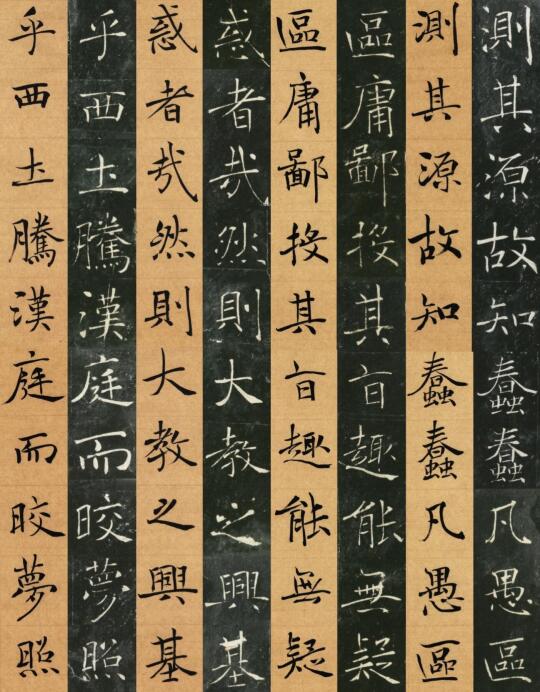 測其源故知蠢蠢凡愚區
測其源故知蠢蠢凡愚區
區庸鄙投其旨趣能無疑
區庸鄙投其旨趣能無疑
惑者哉然則大教之興基
惑者哉然則大教之興基
乎西土騰漢庭而皎夢照
乎西土騰漢庭而皎夢照